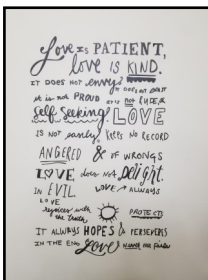 Love IS PATIENT,
love IS KIND.
IT DOES NOT envy, IT DOES NOT BOAST
it is not PROUD IT IS NOT RUDE, OR
Self Seeking. LOVE
IS NOT easily KEEPS NO RECORD
ANGERED & OF WRONGS
LOVE does Not Delight
IN EVIL LOVE ALWAYS
LOVE
rejoices with the truth PROTECTS
IT ALWAYS HOPES & PERSEVERES
IN THE END Love never